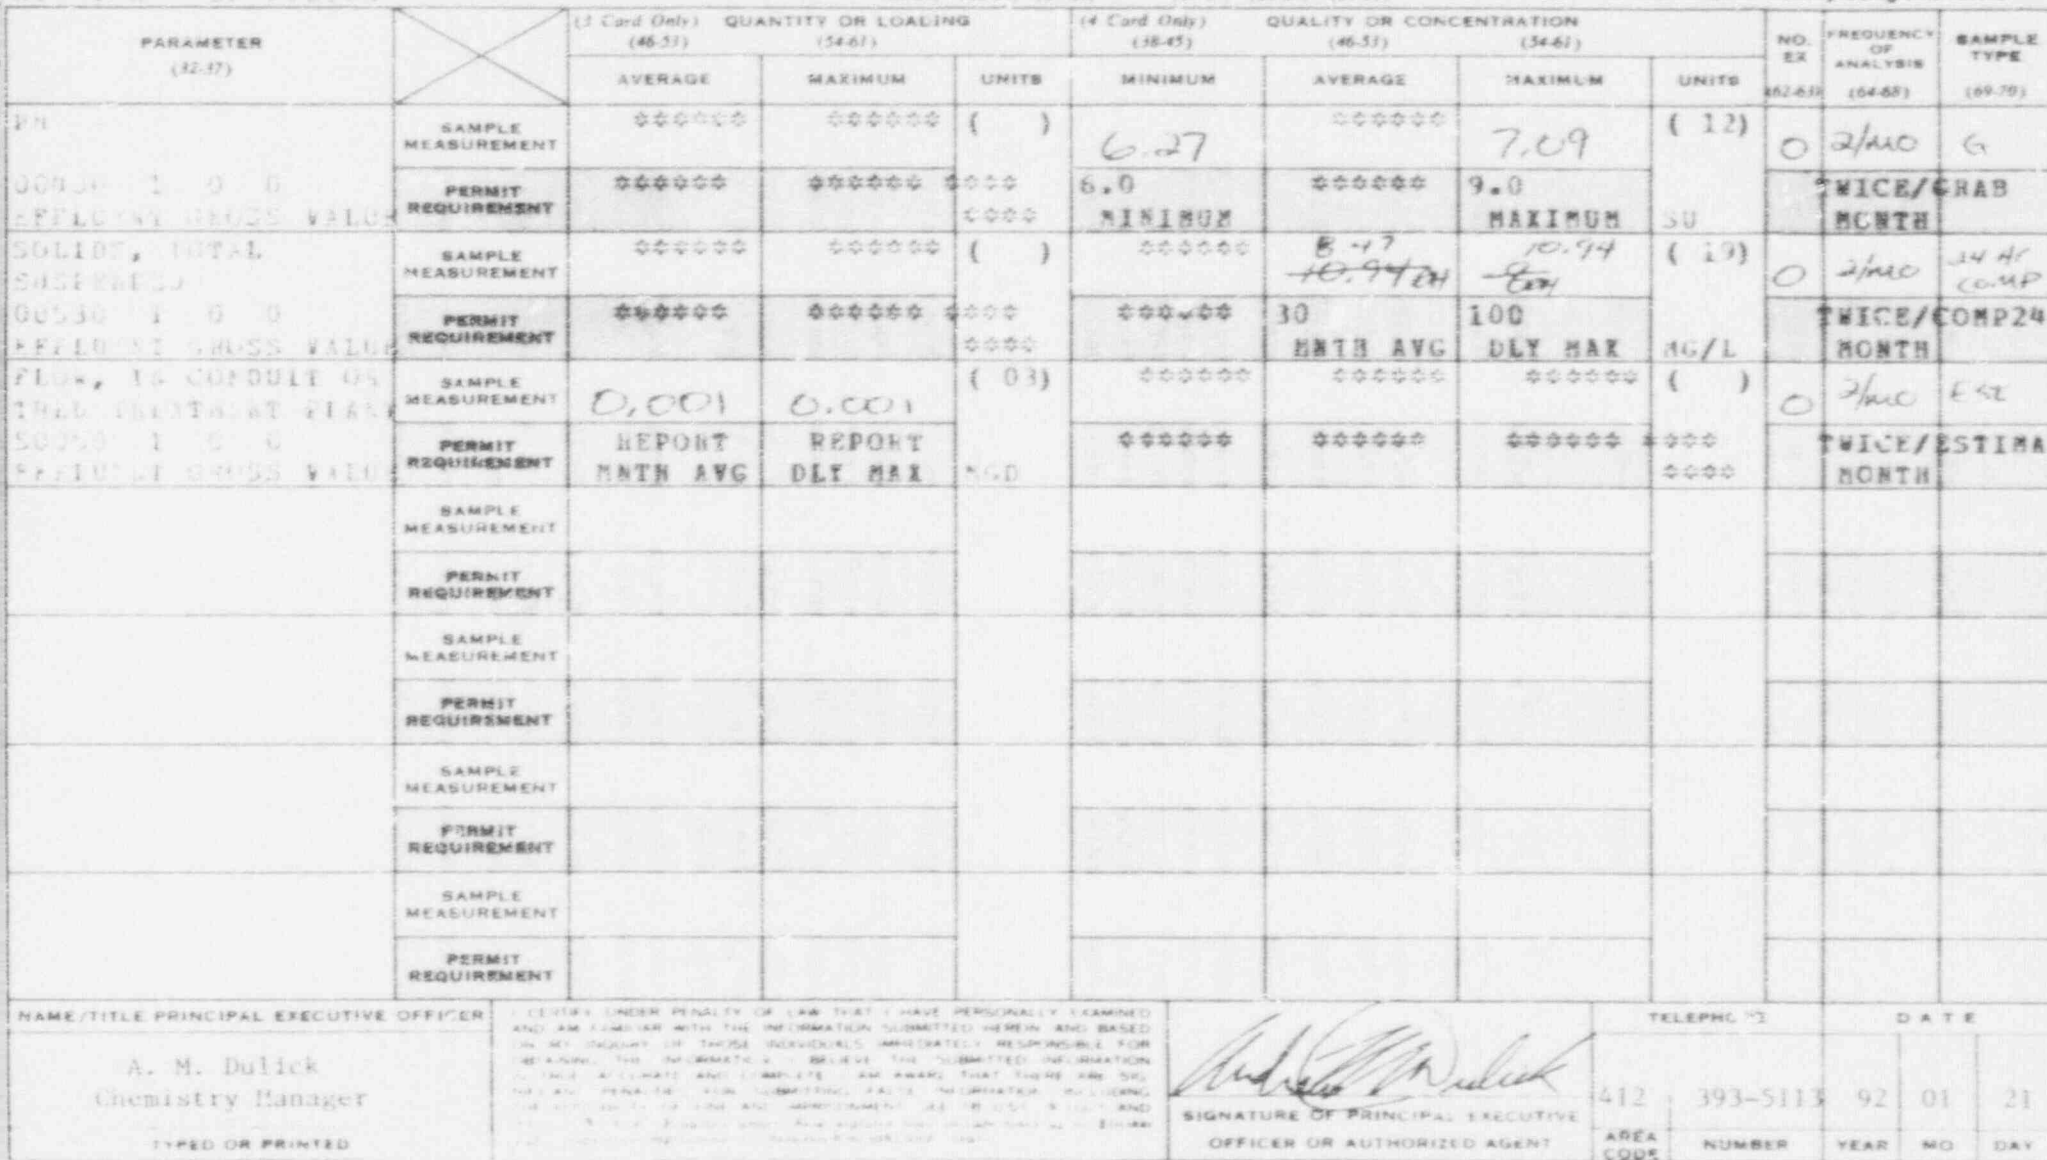 PARAMETER
(32-37)
(3 Card Only) QUANTITY OR LOADING
(46-53) (54-61)
(4 Card Only) QUALITY OR CONCENTRATION
(38-45) (46-53) (54-61)
NO. EX
(62-63)
FREQUENCY OF ANALYSIS
(64-68)
SAMPLE TYPE
(69-70)
AVERAGE MAXIMUM UNITS MINIMUM AVERAGE MAXIMUM UNITS
PH
SAMPLE MEASUREMENT ****** ****** ( ) 6.27 ****** 7.09 ( 12) 0 2/MO G
00400 1 0 0
EFFLUENT GROSS VALUE
PERMIT REQUIREMENT ****** ****** **** 6.0 ****** 9.0 TWICE/GRAB
**** MINIMUM MAXIMUM SU MONTH
SOLIDS, TOTAL
SUSPENDED
SAMPLE MEASUREMENT ****** ****** ( ) ****** 8.47 10.94 ( 19) 0 2/MO 24 Hr COMP
10.94
00530 1 0 0
EFFLUENT GROSS VALUE
PERMIT REQUIREMENT ****** ****** **** ****** 30 100 TWICE/COMP24
**** MNTH AVG DLY MAX MG/L MONTH
FLOW, IN CONDUIT OR
THRU TREATMENT PLANT
SAMPLE MEASUREMENT 0.001 0.001 ( 03) ****** ****** ****** ( ) 0 2/MO EST
50050 1 0 0
EFFLUENT GROSS VALUE
PERMIT REQUIREMENT REPORT REPORT ****** ****** ****** **** TWICE/ESTIMA
MNTH AVG DLY MAX MGD **** MONTH
SAMPLE MEASUREMENT
PERMIT REQUIREMENT
SAMPLE MEASUREMENT
PERMIT REQUIREMENT
SAMPLE MEASUREMENT
PERMIT REQUIREMENT
SAMPLE MEASUREMENT
PERMIT REQUIREMENT
NAME/TITLE PRINCIPAL EXECUTIVE OFFICER
A. M. Dulick
Chemistry Manager
TYPED OR PRINTED
I CERTIFY UNDER PENALTY OF LAW THAT I HAVE PERSONALLY EXAMINED
AND AM FAMILIAR WITH THE INFORMATION SUBMITTED HEREIN AND BASED
ON MY INQUIRY OF THOSE INDIVIDUALS IMMEDIATELY RESPONSIBLE FOR
OBTAINING THE INFORMATION I BELIEVE THE SUBMITTED INFORMATION
IS TRUE ACCURATE AND COMPLETE I AM AWARE THAT THERE ARE SIG-
NIFICANT PENALTIES FOR SUBMITTING FALSE INFORMATION INCLUDING
THE POSSIBILITY OF FINE AND IMPRISONMENT
SIGNATURE OF PRINCIPAL EXECUTIVE
OFFICER OR AUTHORIZED AGENT
TELEPHONE
412 393-5113
AREA CODE NUMBER
DATE
92 01 21
YEAR MO DAY